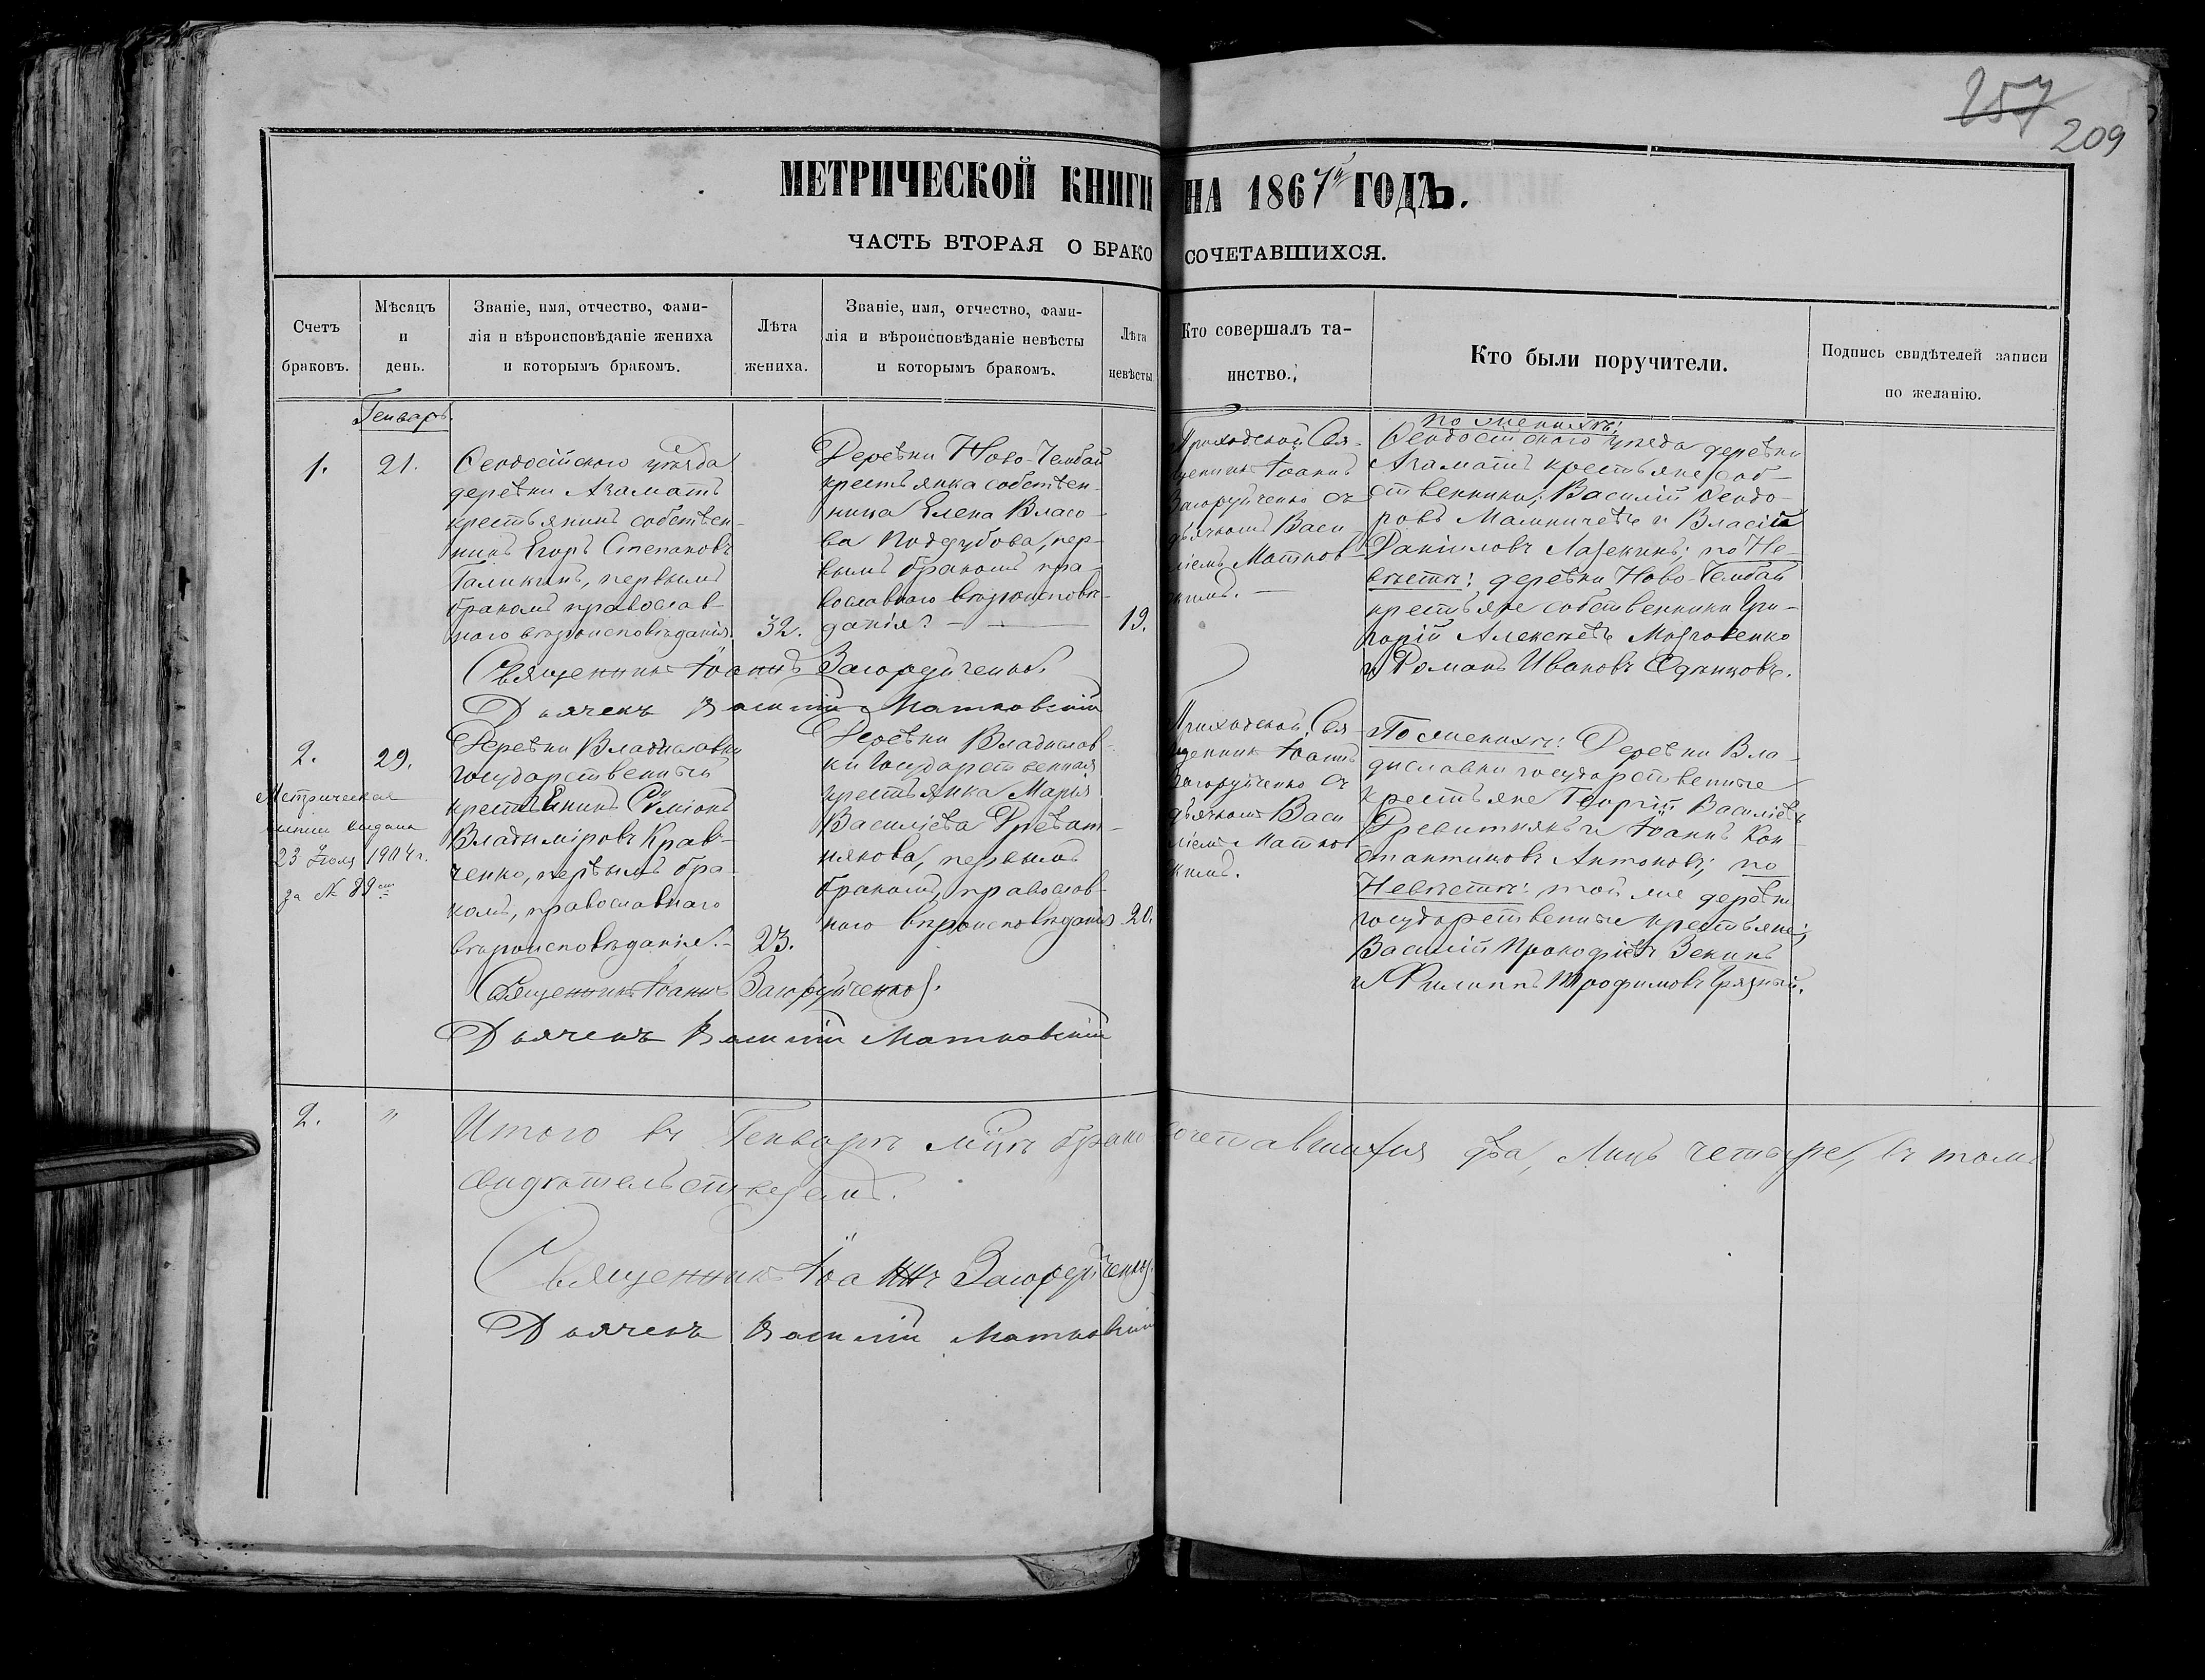 257
209
МЕТРИЧЕСКОЙ КНИГИ НА 1867й ГОДЪ.
ЧАСТЬ ВТОРАЯ О БРАКОСОЧЕТАВШИХСЯ.
Счетъ браковъ.
Мѣсяцъ и день.
Званіе, имя, отчество, фами-
лія и вѣроисповѣданіе жениха
и которымъ бракомъ.
Лѣта
жениха.
Званіе, имя, отчество, фами-
лія и вѣроисповѣданіе невѣсты
и которымъ бракомъ.
Лѣта
невѣсты.
Кто совершалъ та-
инство.
Кто были поручители.
Подпись свидѣтелей записи
по желанію.
Генварь.
1.
21.
Ѳеодосійского уѣзда
деревни Агаматъ
крестьянинъ собствен-
никъ Егоръ Степановъ
Галикинъ, первымъ
бракомъ православ-
ного вѣроисповѣданія.
32.
Деревни Ново-Чембай
крестьянка собствен-
ница Елена Власо-
ва Поддубова, пер-
вымъ бракомъ пра-
вославного вѣроисповѣ-
данія.
19.
Приходской Свя-
щенникъ Іоаннъ
Загоруйченко съ
дьячкомъ Васи-
ліемъ Матков-
скимъ.
по женихѣ:
Ѳеодосійского уѣзда деревни
Агаматъ крестьяне соб-
ственники; Василій Ѳеодо-
ровъ Малыничевъ и Власій
Даніиловъ Лазекинъ; по Не-
вѣстѣ: деревни Ново-Чембай
крестьяне собственники Гри-
горій Алексѣевъ Мозговенко
и Романъ Ивановъ Одинцовъ.
Священникъ Іоаннъ Загоруйченко.
Дьячекъ Василій Матковскій
2.
29.
Метрическая
выпись выдана
23 Іюля 1904 г.
за № 89
Деревни Владиславки
государственный
крестьянинъ Симіонъ
Владиміровъ Крав-
ченко, первымъ бра-
комъ, православного
вѣроисповѣданія.
23.
Деревни Владислав-
ки Государственная
крестьянка Марія
Василіева Древат-
някова, первымъ
бракомъ, православ-
ного вѣроисповѣданія
20.
Приходской Свя-
щенникъ Іоаннъ
Загоруйченко съ
дьячкомъ Васи-
ліемъ Матков-
скимъ.
По женихѣ: Деревни Вла-
диславки государственные
крестьяне Георгій Василіевъ
Древитнякъ и Іоаннъ Кон-
стантиновъ Антоновъ; по
Невѣстѣ: той же деревни
государственные крестьяне;
Василій Прокофіевъ Зенинъ
и Филиппъ Трофимовъ Грязный.
Священникъ Іоаннъ Загоруйченко.
Дьячекъ Василій Матковскій
2. "
Итого въ Генварѣ мѣцѣ бракосочетавшихся два, Лицъ четыре, въ томъ
свидѣтельствуемъ.
Священникъ Іоаннъ Загоруйченко.
Дьячекъ Василій Матковскій